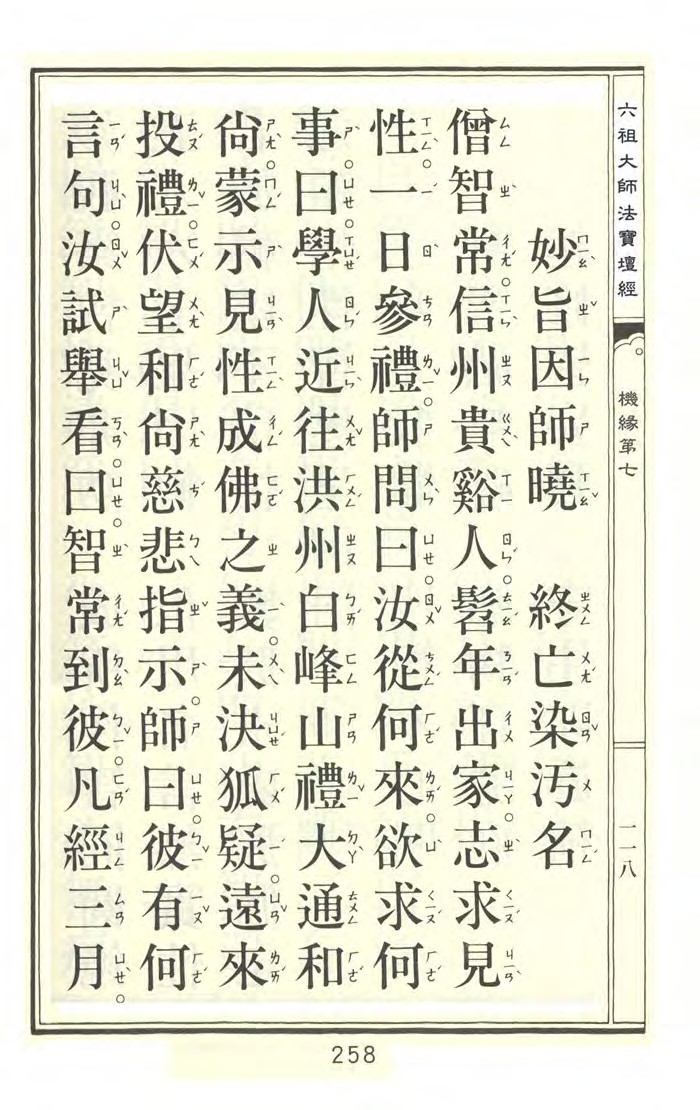 六祖大師法寶壇經
機緣第七
一一八
妙旨因師曉　終亡染汚名
僧智常信州貴谿人髫年出家志求見
性一日參禮師問曰汝從何來欲求何
事曰學人近往洪州白峰山禮大通和
尙蒙示見性成佛之義未決狐疑遠來
投禮伏望和尙慈悲指示師曰彼有何
言句汝試舉看曰智常到彼凡經三月
258